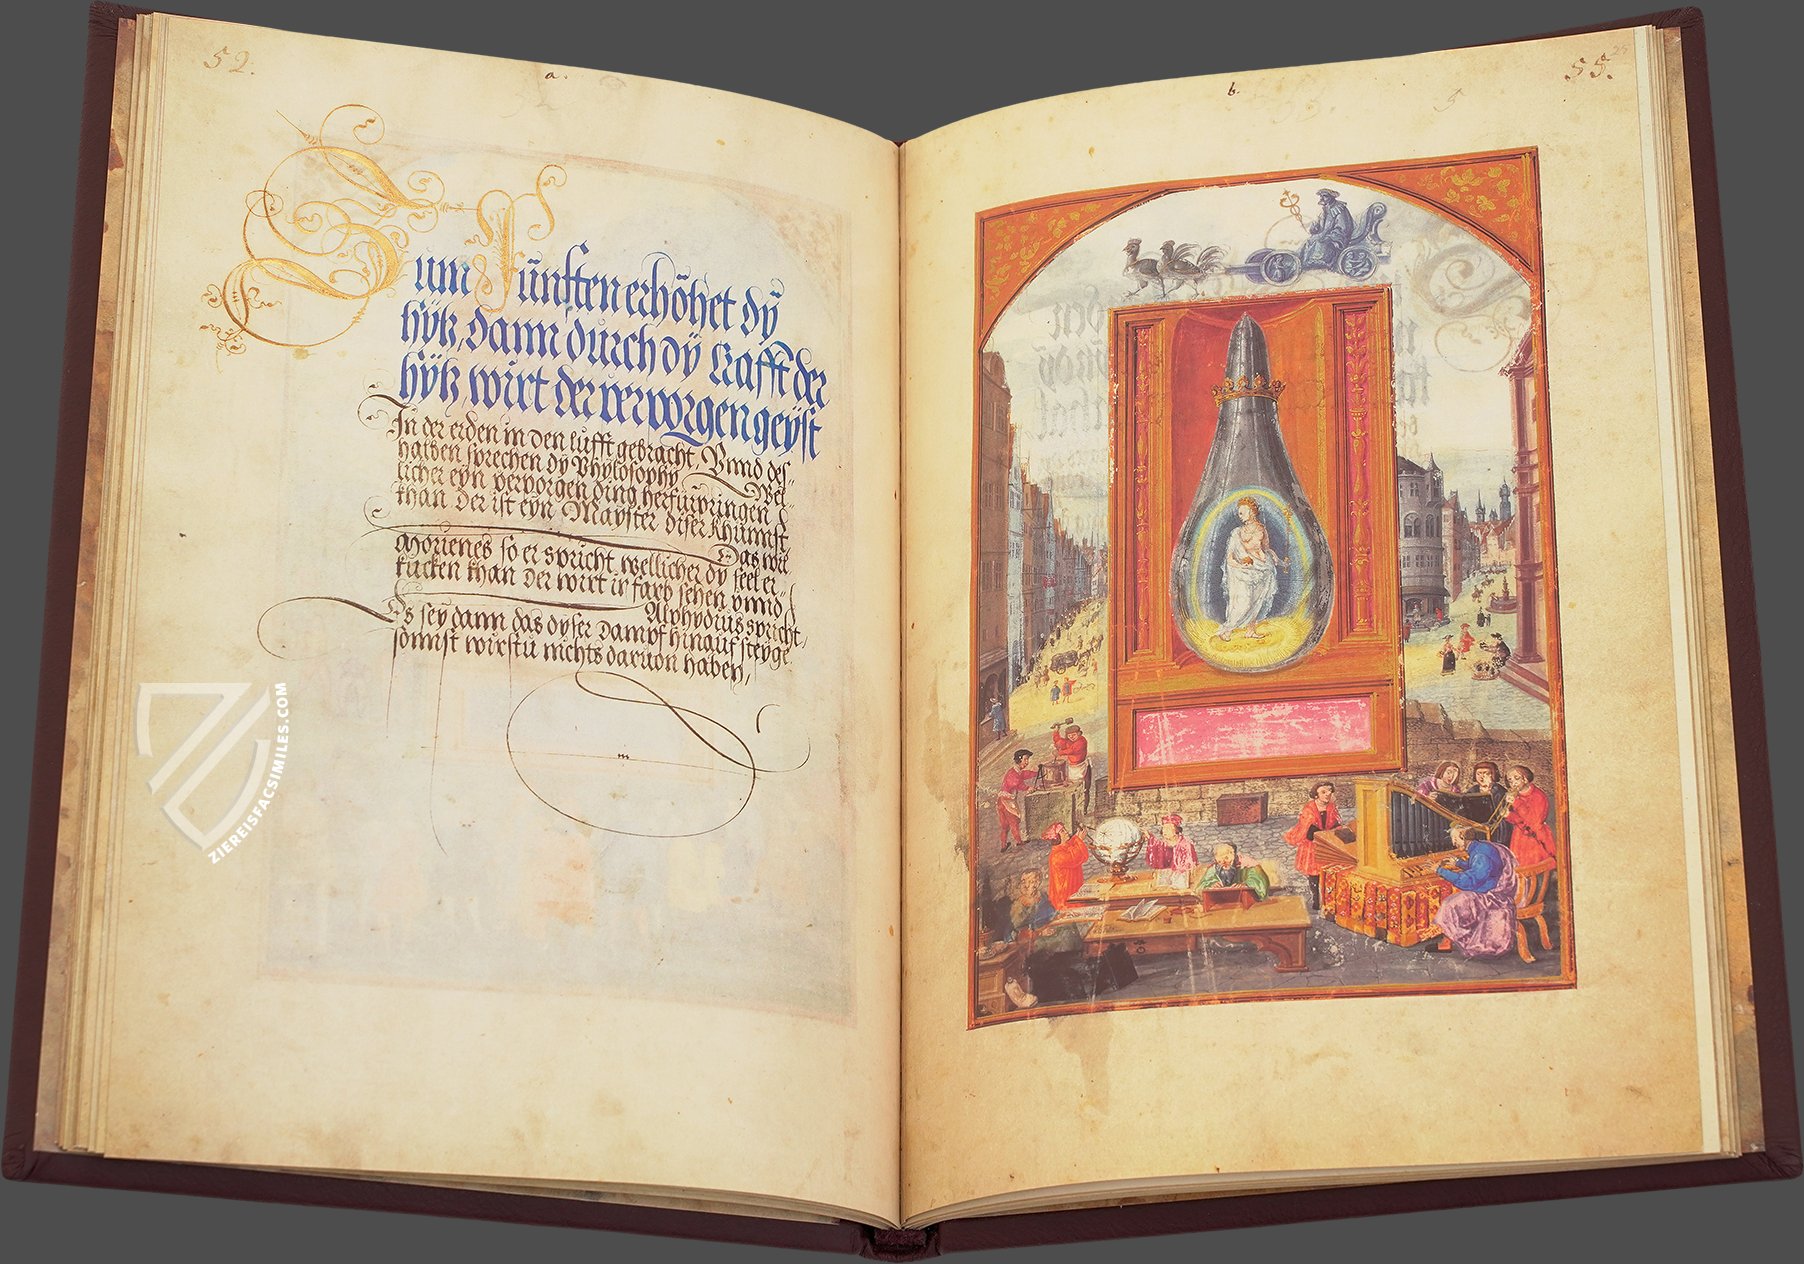 52.
a.
Zum Fünften erhöhet dÿ
hÿtz, dann durch dÿ krafft der
hÿtz wirt der verporgen geÿst
In der erden in den lufft gebracht, Vnnd des-
halben sprechen dÿ Phylosophy Wel-
licher eyn verporgen ding herfürpringen
khan der ist eyn Mayster diser khunnst
Das wil
Morienes so er spricht wellicher dy seel er-
kucken khan der wirt ir farb sehen vnnd
Alphydius spricht,
Es sey dann das dyser dampf hinauf steyge
sonnst wirstu nichts daruon haben,
b.
5
55.
25
ZIEREISFACSIMILES.COM